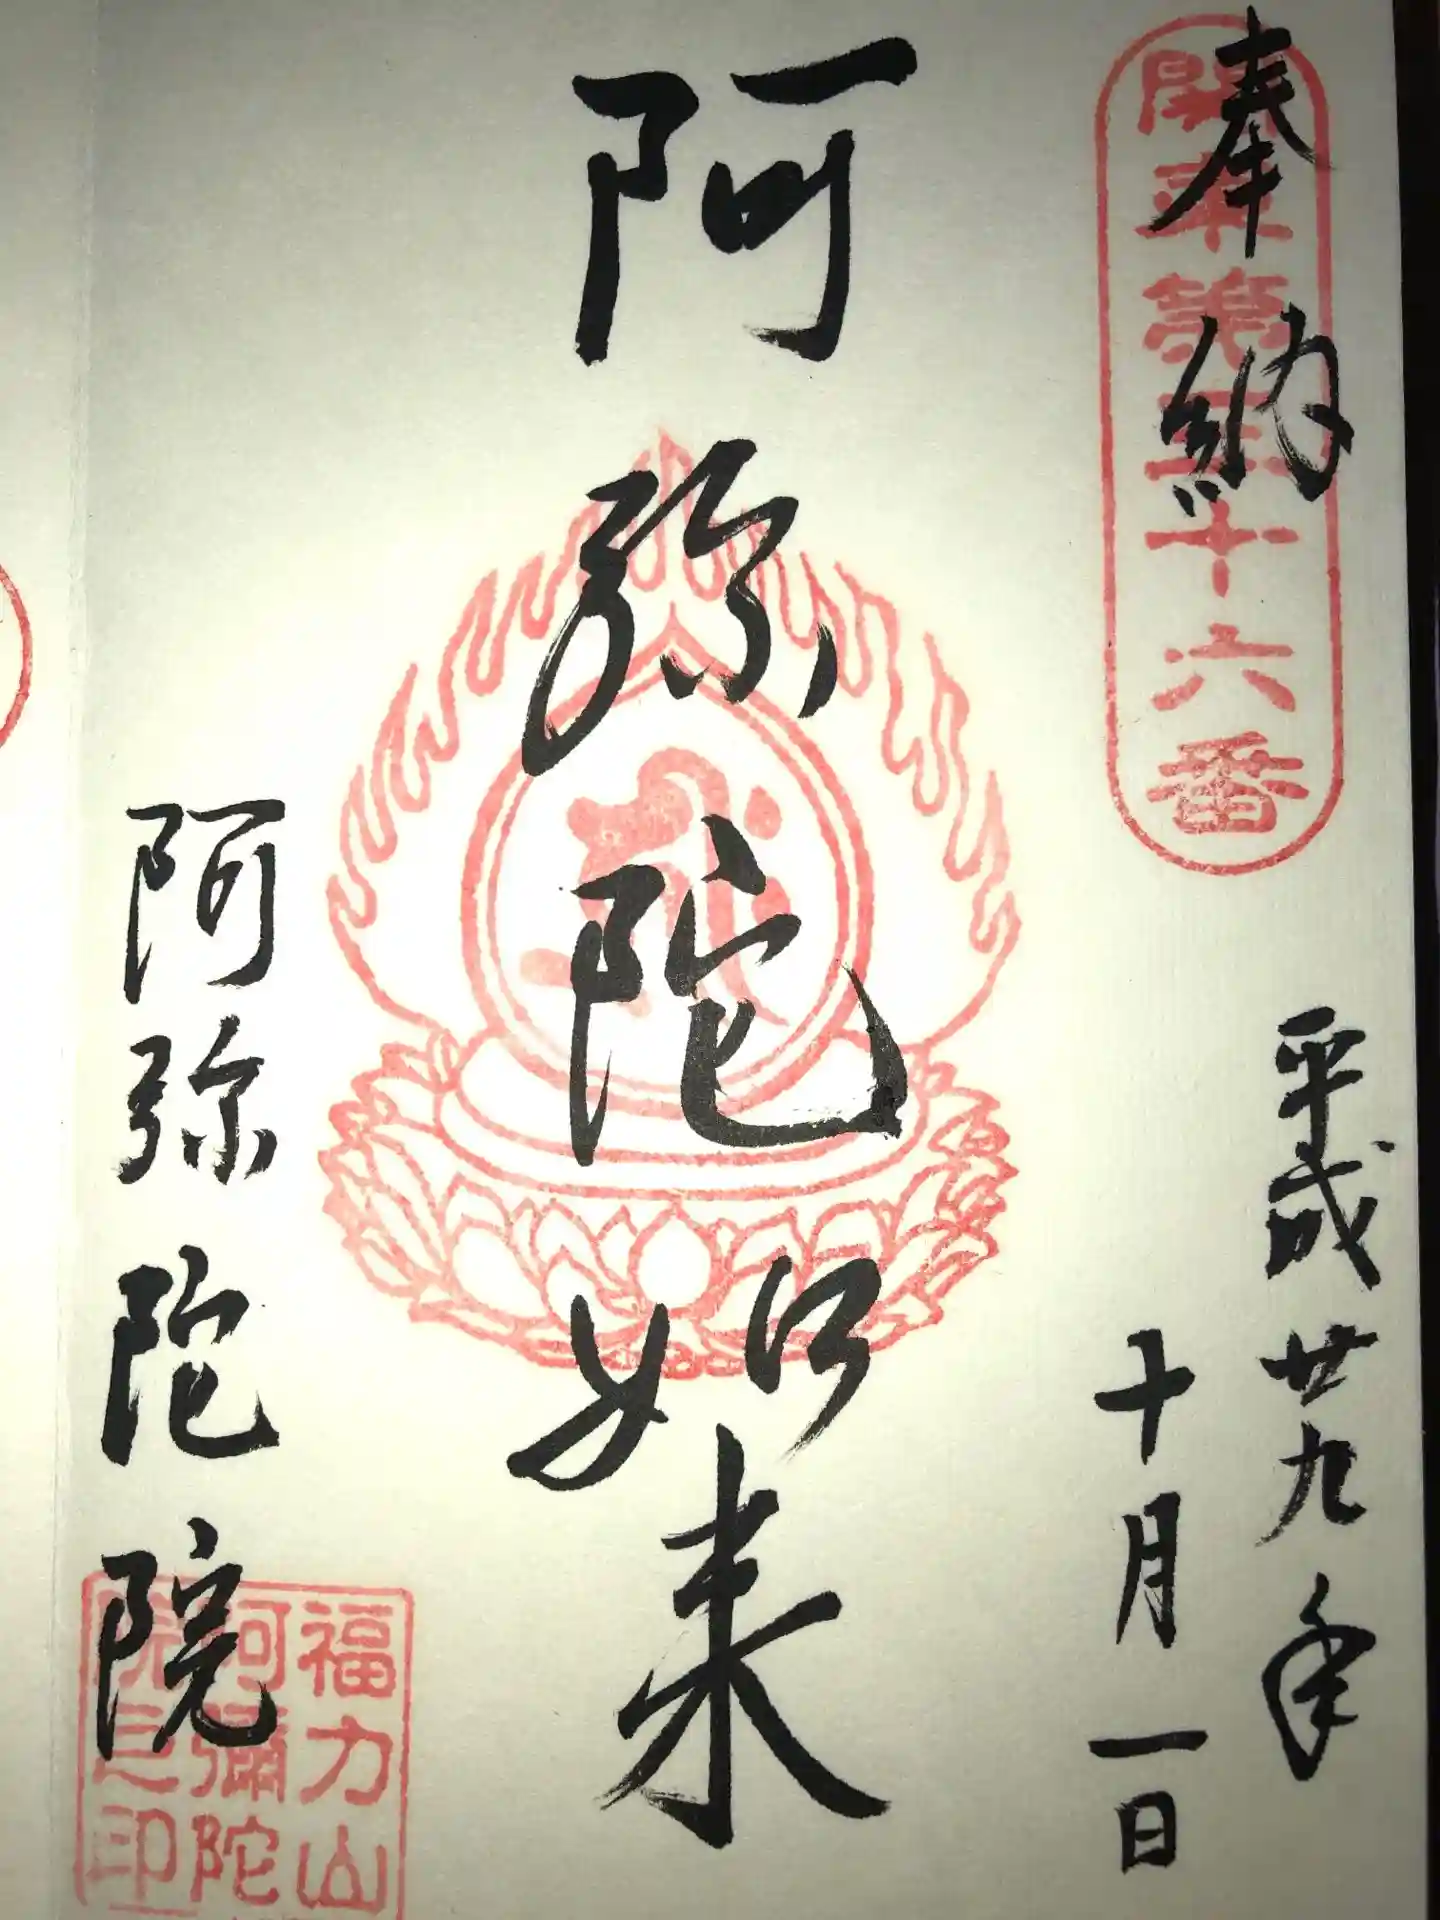 奉納
関東第三十六番
平成廿九年
十月一日
阿弥陀如来
阿弥陀院
福力山
阿彌陀
院之印